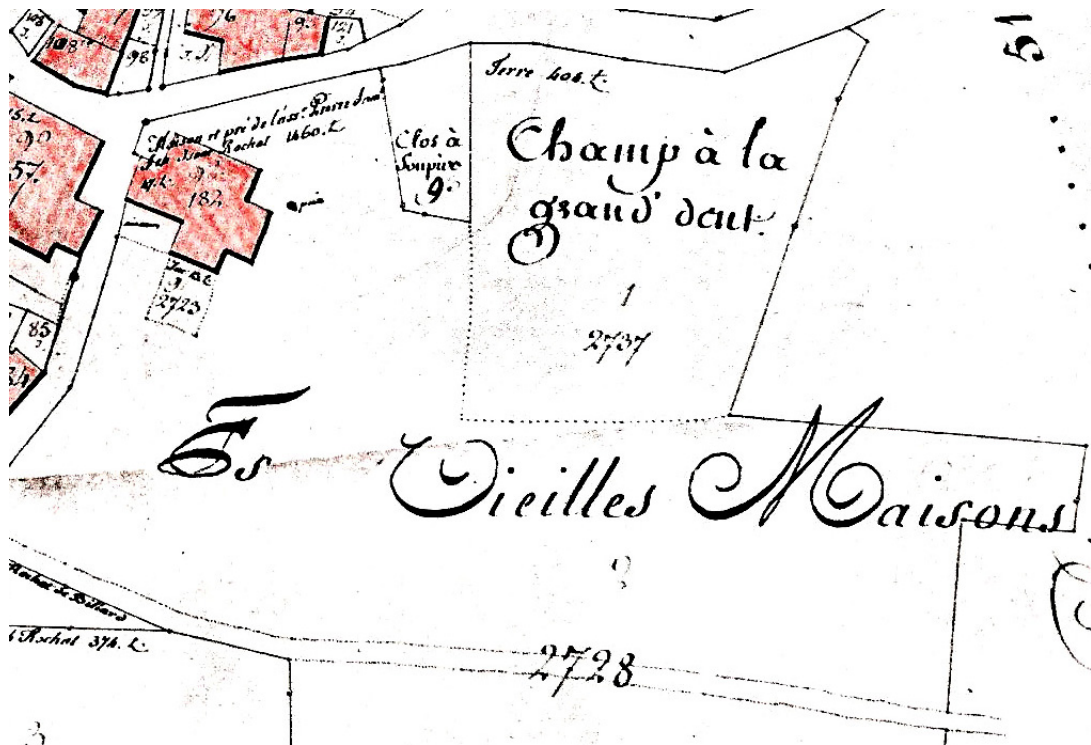 98
121
Terre 404. t.
Maison et pré de l'ass.r Pierre
Rochat 1460. t.
57.
182
puis
Clos à
Soupire
9.
Champ à la
grand' dent.
1
2737
2723
85
Es Vieilles Maisons
2
2728
Rochat de Billard
Rochat 374. t.
3
51